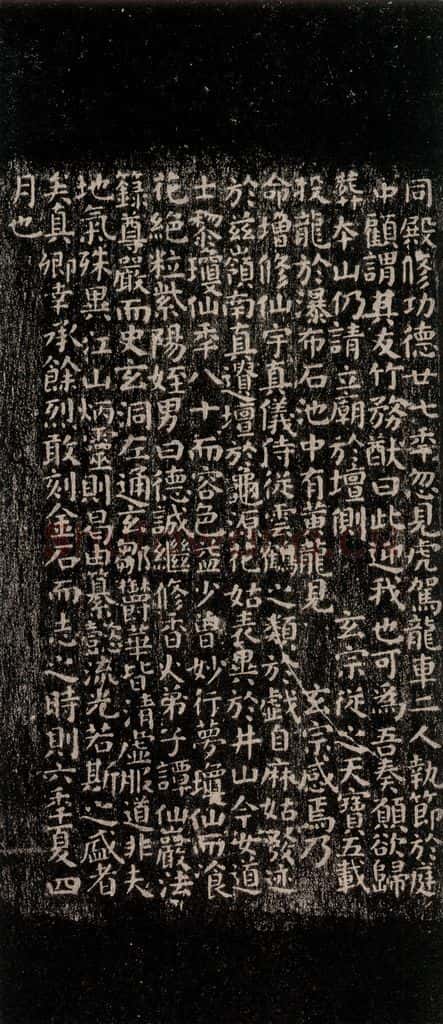 同殿修功德廿七年忽見虎駕龍車二人執節於庭
中顧謂其友竹務猷曰此迎我也可為吾奏願欲歸
葬本山仍請立廟於壇側玄宗從之天寶五載
投龍於瀑布石池中有黃龍見玄宗感焉乃
命增修仙宇真儀侍從雲鶴之類於戲自麻姑發迹
於茲嶺南真遺壇於龜源花姑表異於井山今女道
士黎瓊仙年八十而容色益少曾妙行夢瓊仙而飡
花絕粒紫陽姪男曰德誠繼修香火弟子譚仙巖法
籙尊嚴而史玄洞左通玄鄒鬱華皆清虛服道非夫
地氣殊異江山炳靈則曷由纂懿流光若斯之盛者
矣真卿幸承餘烈敢刻金石而志之時則六年夏四
月也